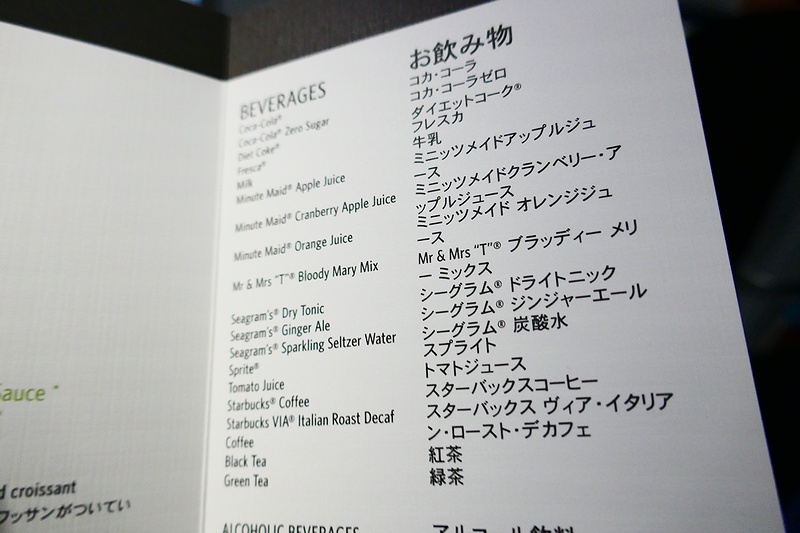 Sauce "
d croissant
ワッサンがついてい
BEVERAGES
Coca-Cola®
Coca-Cola® Zero Sugar
Diet Coke®
Fresca®
Milk
Minute Maid® Apple Juice
Minute Maid® Cranberry Apple Juice
Minute Maid® Orange Juice
Mr & Mrs "T"® Bloody Mary Mix
Seagram's® Dry Tonic
Seagram's® Ginger Ale
Seagram's® Sparkling Seltzer Water
Sprite®
Tomato Juice
Starbucks® Coffee
Starbucks VIA® Italian Roast Decaf
Coffee
Black Tea
Green Tea
ALCOHOLIC BEVERAGES
お飲み物
コカ・コーラ
コカ・コーラゼロ
ダイエットコーク®
フレスカ
牛乳
ミニッツメイドアップルジュ
ース
ミニッツメイドクランベリー・ア
ップルジュース
ミニッツメイド オレンジジュ
ース
Mr & Mrs "T"® ブラッディー メリ
ー ミックス
シーグラム® ドライトニック
シーグラム® ジンジャーエール
シーグラム® 炭酸水
スプライト
トマトジュース
スターバックスコーヒー
スターバックス ヴィア・イタリア
ン・ロースト・デカフェ
紅茶
緑茶
アルコール飲料